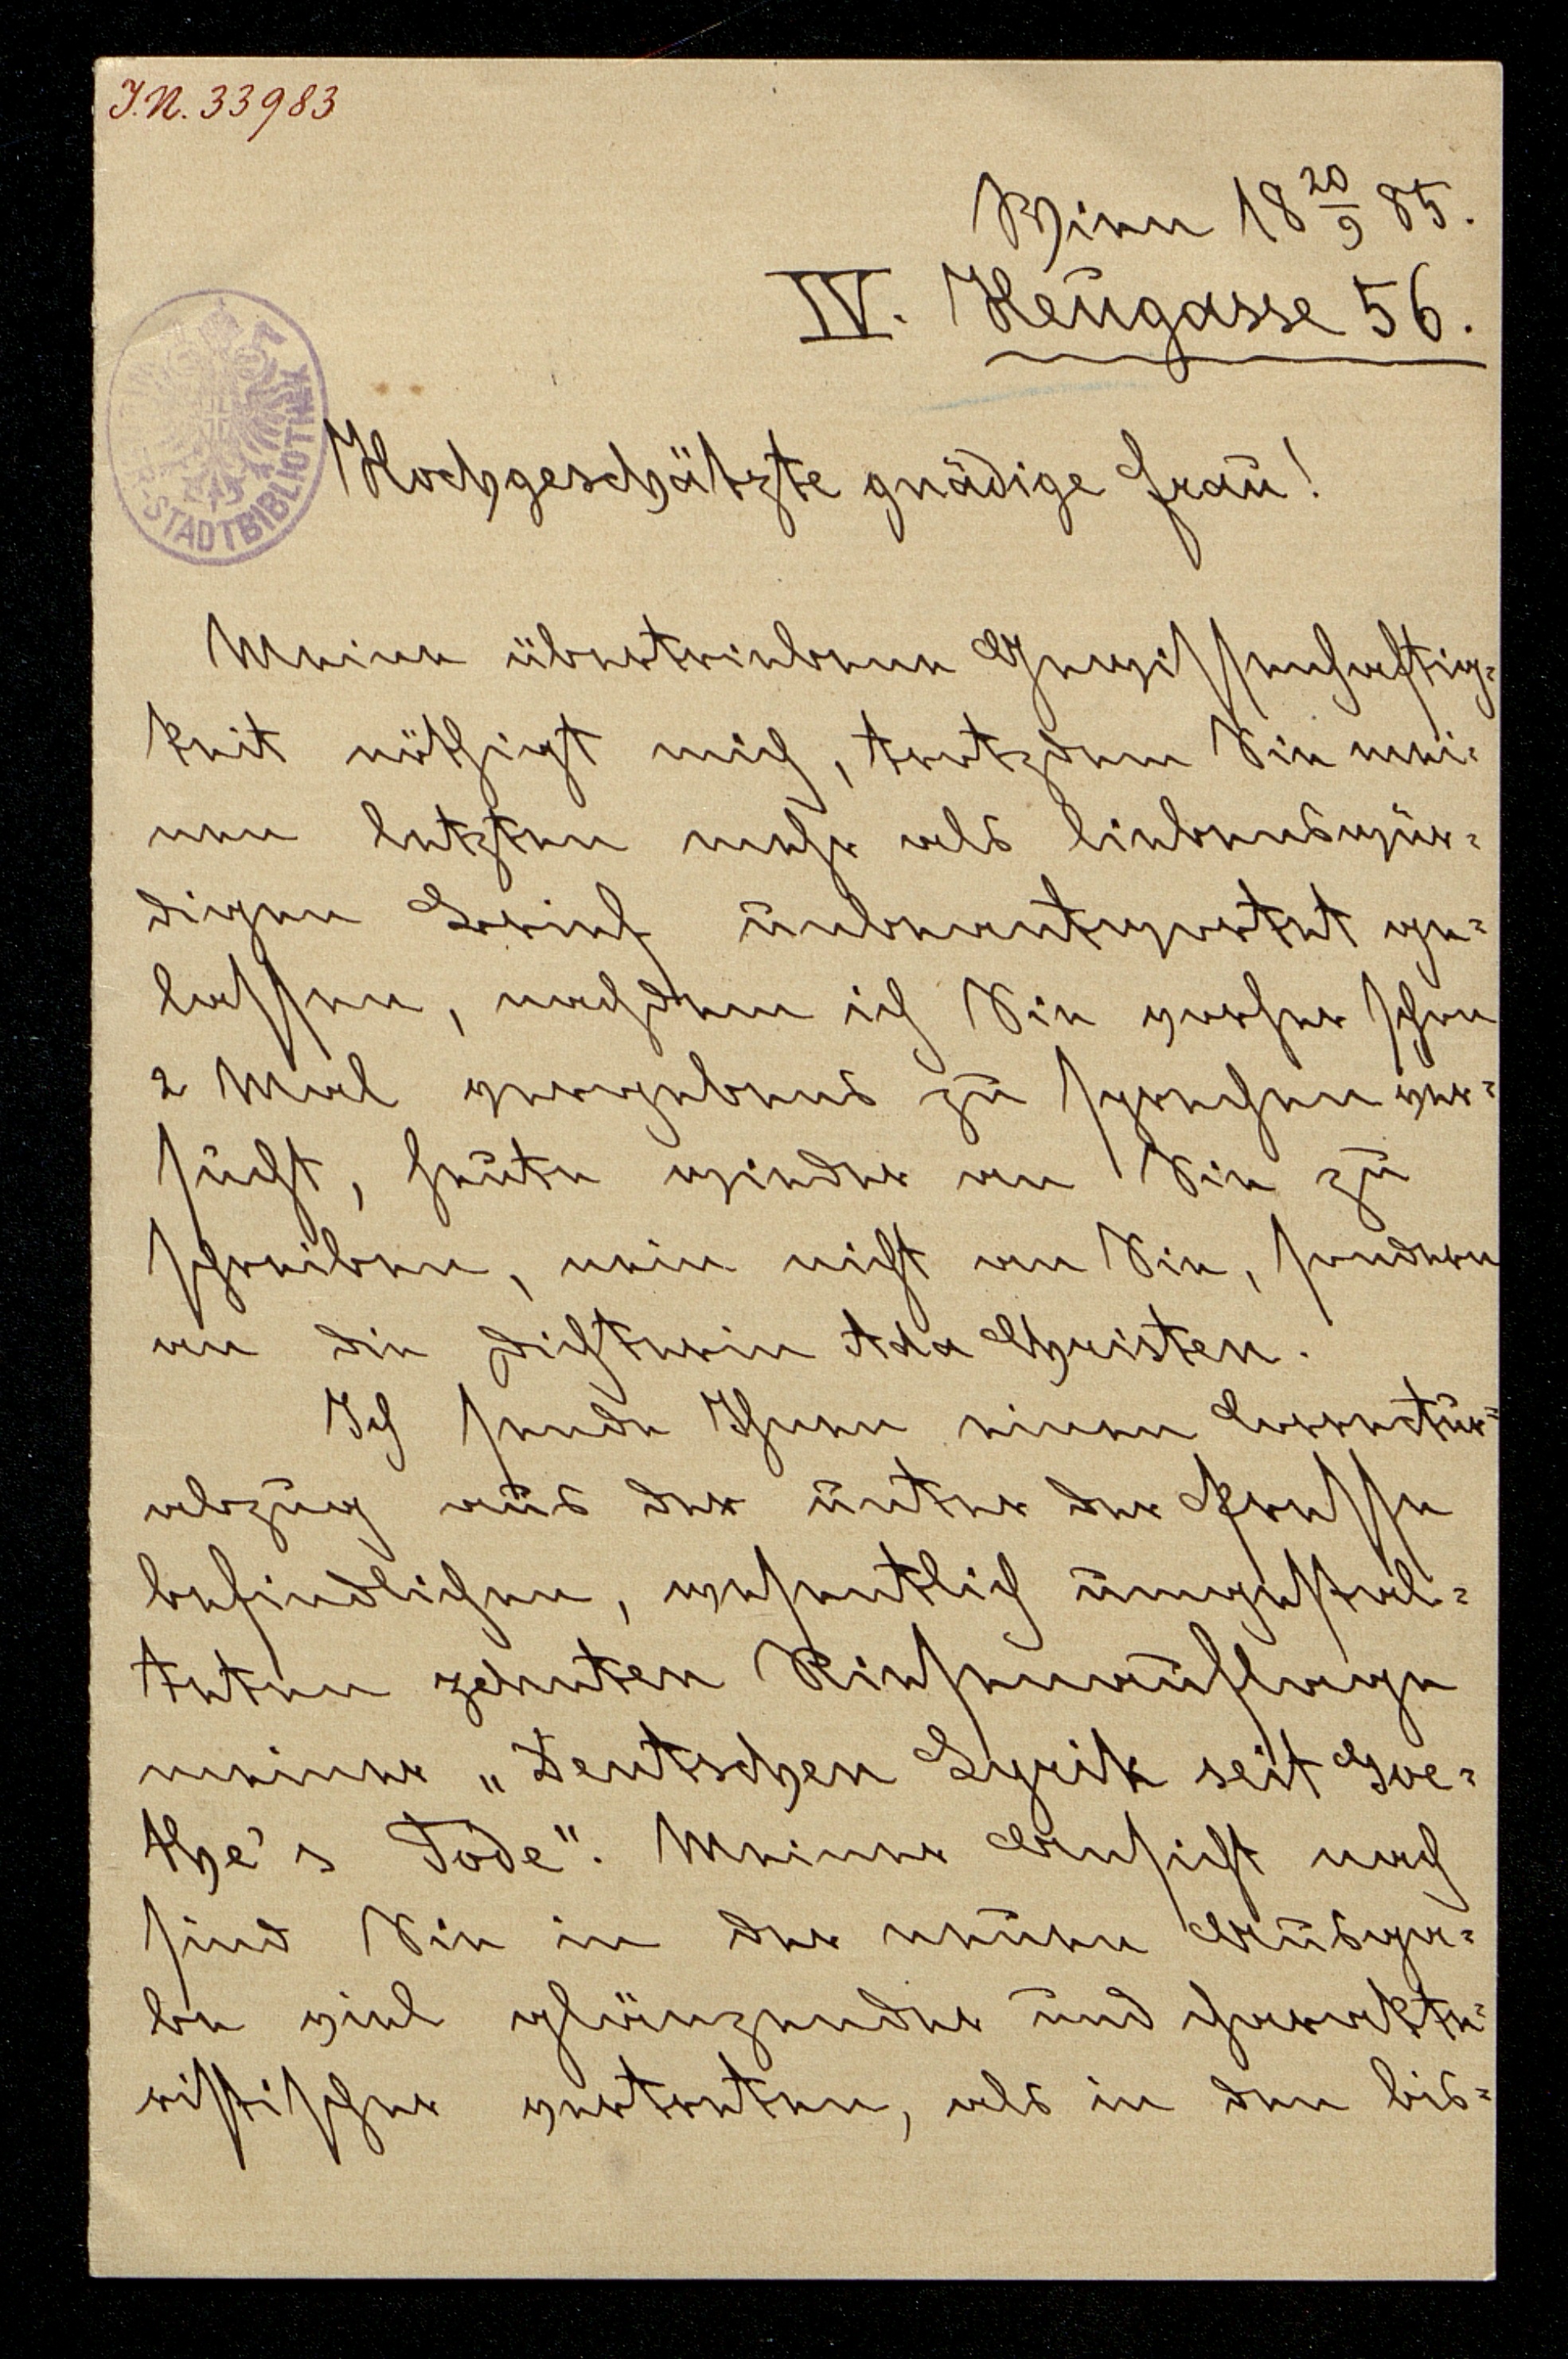 I.N. 33983
Wien 18 20/9 85.
IV. Heugasse 56.
STADTBIBLIOTHEK
Hochgeschätzte gnädige Frau!
Meine übertriebene Gewissenhaftig-
keit nöthigt mich, trotzdem Sie mei-
nen letzten mehr als liebenswür-
digen Brief unbeantwortet ge-
lassen, nachdem ich Sie vorher schon
2 Mal vergebens zu sprechen ver-
sucht, heute wieder an Sie zu
schreiben, nein nicht an Sie, sondern
an die Dichterin Ada Christen.
Ich sende Ihnen einen Correctur-
abzug aus der unter der Presse
befindlichen, wesentlich umgestal-
teten zehnten Riesenauflage
meiner „Deutschen Lyrik seit Goe-
the's Tode". Meiner Ansicht nach
sind Sie in der neuen Ausga-
be viel glänzender und charakte-
ristischer vertreten, als in den bis-